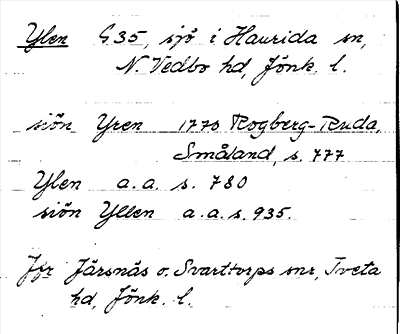 Ylen G.35, sjö i Haurida sn,
N. Vedbo hd, Jönk. l.
siön Yren 1770 Rogberg-Ruda,
Småland, s. 777
Ylen a.a. s. 780
siön Yllen a.a.s. 935.
Jfr Järsnäs o. Svarttorps snr, Tveta
hd, Jönk. l.